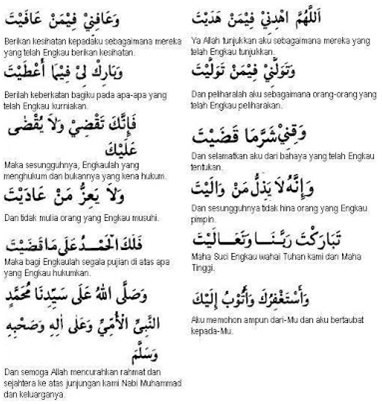 اَللّٰهُمَّ اهْدِنِيْ فِيْمَنْ هَدَيْتَ
Ya Allah tunjukkan aku sebagaimana mereka yang
telah Engkau tunjukkan.
وَعَافِنِيْ فِيْمَنْ عَافَيْتَ
Berikan kesihatan kepadaku sebagaimana mereka
yang telah Engkau berikan kesihatan.
وَتَوَلَّنِيْ فِيْمَنْ تَوَلَّيْتَ
Dan peliharalah aku sebagaimana orang-orang yang
telah Engkau peliharakan.
وَبَارِكْ لِىْ فِيْمَا أَعْطَيْتَ
Berilah keberkatan bagiku pada apa-apa yang
telah Engkau kurniakan.
وَقِنِيْ شَرَّمَا قَضَيْتَ
Dan selamatkan aku dari bahaya yang telah Engkau
tentukan.
فَإِنَّكَ تَقْضِيْ وَلاَ يُقْضٰى
عَلَيْكَ
Maka sesungguhnya, Engkaulah yang
menghukum dan bukannya yang kena hukum.
وَإِنَّهُ لاَ يَذِلُّ مَنْ وَالَيْتَ
Dan sesungguhnya tidak hina orang yang Engkau
pimpin.
وَلاَ يَعِزُّ مَنْ عَادَيْتَ
Dan tidak mulia orang yang Engkau musuhi.
تَبَارَكْتَ رَبَّنَا وَتَعَالَيْتَ
Maha Suci Engkau wahai Tuhan kami dan Maha
Tinggi.
فَلَكَ الْحَمْدُ عَلَى مَا قَضَيْتَ
Maka bagi Engkaulah segala pujian di atas apa
yang Engkau hukumkan.
وَأَسْتَغْفِرُكَ وَأَتُوْبُ إِلَيْكَ
Aku memohon ampun dari-Mu dan aku bertaubat
kepada-Mu.
وَصَلَّى اللهُ عَلَى سَيِّدِنَا مُحَمَّدٍ
النَّبِيِّ الْأُمِّيِّ وَعَلَى اٰلِهِ وَصَحْبِهِ
وَسَلَّمَ
Dan semoga Allah mencurahkan rahmat dan
sejahtera ke atas junjungan kami Nabi Muhammad
dan keluarganya.